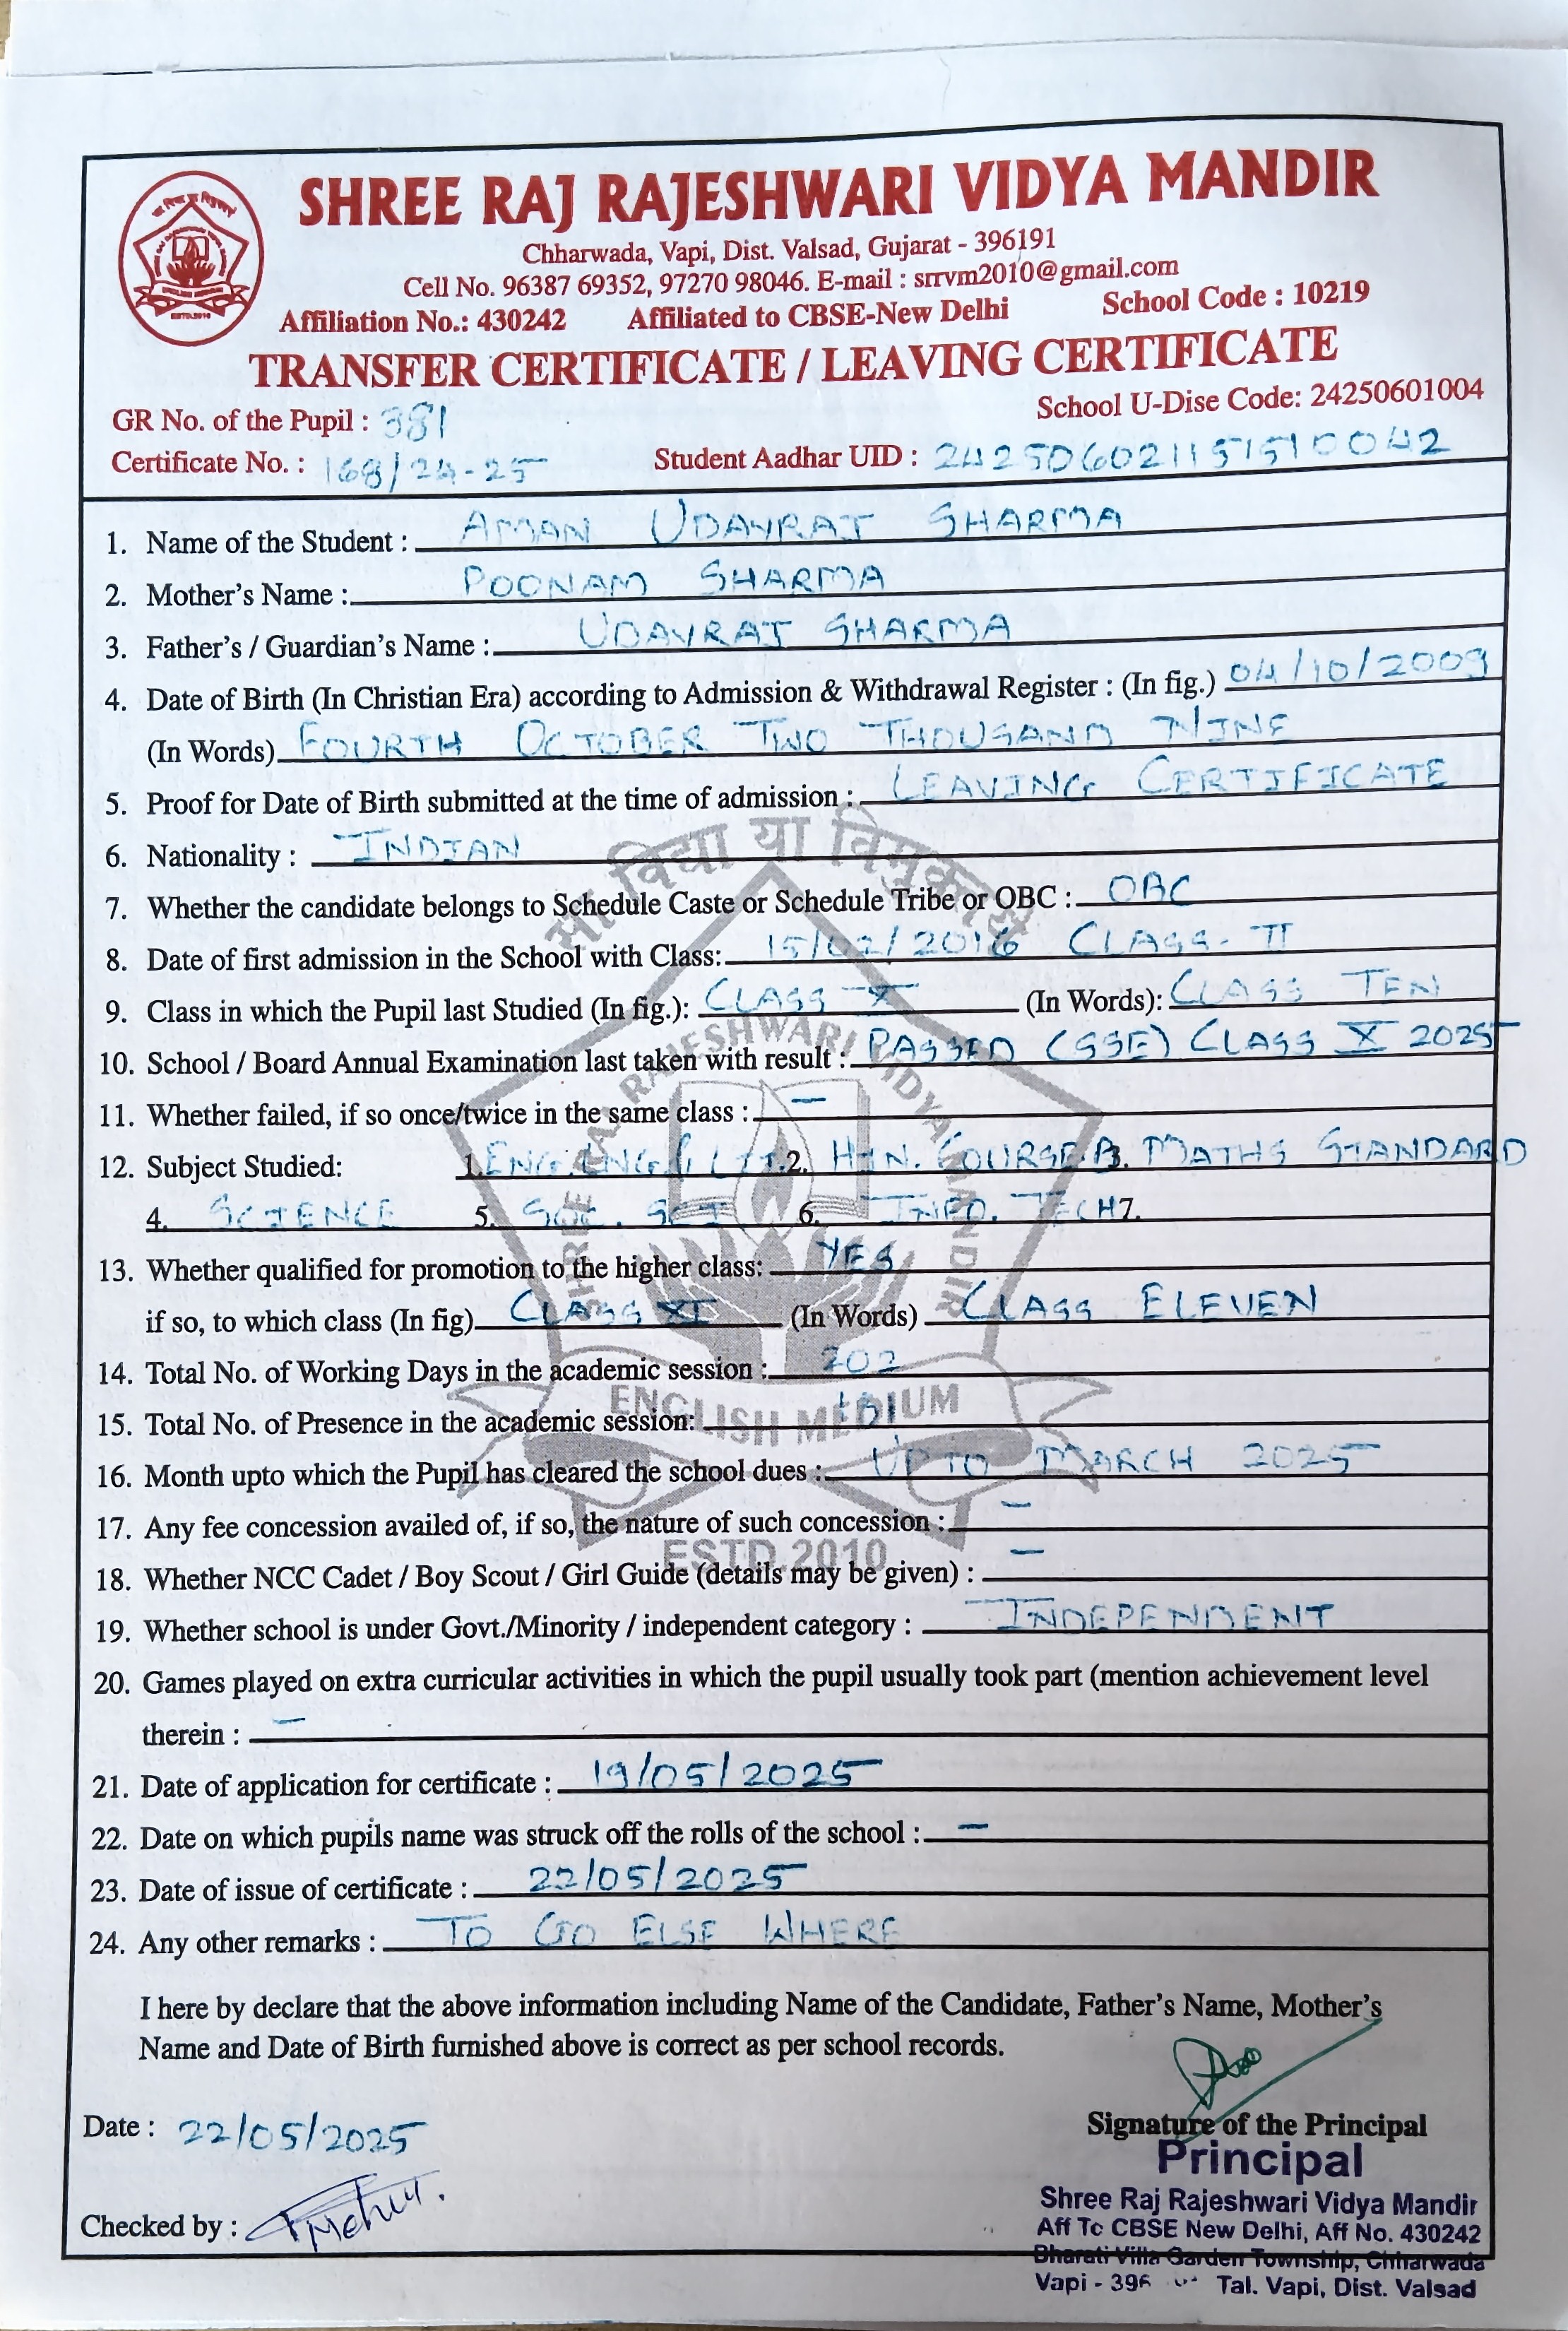 SHREE RAJ RAJESHWARI VIDYA MANDIR
Chharwada, Vapi, Dist. Valsad, Gujarat - 396191
Cell No. 96387 69352, 97270 98046. E-mail : srrvm2010@gmail.com
Affiliation No.: 430242 Affiliated to CBSE-New Delhi School Code : 10219
TRANSFER CERTIFICATE / LEAVING CERTIFICATE
GR No. of the Pupil : 381 School U-Dise Code: 24250601004
Certificate No. : 168/24-25 Student Aadhar UID :
1. Name of the Student : AMAN UDAYRAJ SHARMA
2. Mother's Name : POONAM SHARMA
3. Father's / Guardian's Name : UDAYRAJ SHARMA
4. Date of Birth (In Christian Era) according to Admission & Withdrawal Register : (In fig.) 04/10/2009
(In Words) FOURTH OCTOBER TWO THOUSAND NINE
5. Proof for Date of Birth submitted at the time of admission : LEAVING CERTIFICATE
6. Nationality : INDIAN
7. Whether the candidate belongs to Schedule Caste or Schedule Tribe or OBC : OBC
8. Date of first admission in the School with Class: CLASS - II
9. Class in which the Pupil last Studied (In fig.): CLASS X (In Words): CLASS TEN
10. School / Board Annual Examination last taken with result : PASSED (SSE) CLASS X 2025
11. Whether failed, if so once/twice in the same class : -
12. Subject Studied: 1. ENG. LNG & LIT. 2. HIN. COURSE-B 3. MATHS STANDARD
4. SCIENCE 5. SOC. SCI 6. INFO. TECH 7.
13. Whether qualified for promotion to the higher class: YES
if so, to which class (In fig) CLASS XI (In Words) CLASS ELEVEN
14. Total No. of Working Days in the academic session : 202
15. Total No. of Presence in the academic session:
16. Month upto which the Pupil has cleared the school dues : UPTO MARCH 2025
17. Any fee concession availed of, if so, the nature of such concession : -
18. Whether NCC Cadet / Boy Scout / Girl Guide (details may be given) : -
19. Whether school is under Govt./Minority / independent category : INDEPENDENT
20. Games played on extra curricular activities in which the pupil usually took part (mention achievement level
therein : -
21. Date of application for certificate : 19/05/2025
22. Date on which pupils name was struck off the rolls of the school : -
23. Date of issue of certificate : 22/05/2025
24. Any other remarks : TO GO ELSE WHERE
I here by declare that the above information including Name of the Candidate, Father's Name, Mother's
Name and Date of Birth furnished above is correct as per school records.
Date : 22/05/2025
Signature of the Principal
Principal
Shree Raj Rajeshwari Vidya Mandir
Checked by :
Aff To CBSE New Delhi, Aff No. 430242
Bharati Villa Garden Township, Chharwada
Vapi - 396 Tal. Vapi, Dist. Valsad
सा विद्या या विमुक्तये
SHREE RAJ RAJESHWARI VIDYA MANDIR
ENGLISH MEDIUM
ESTD.2010